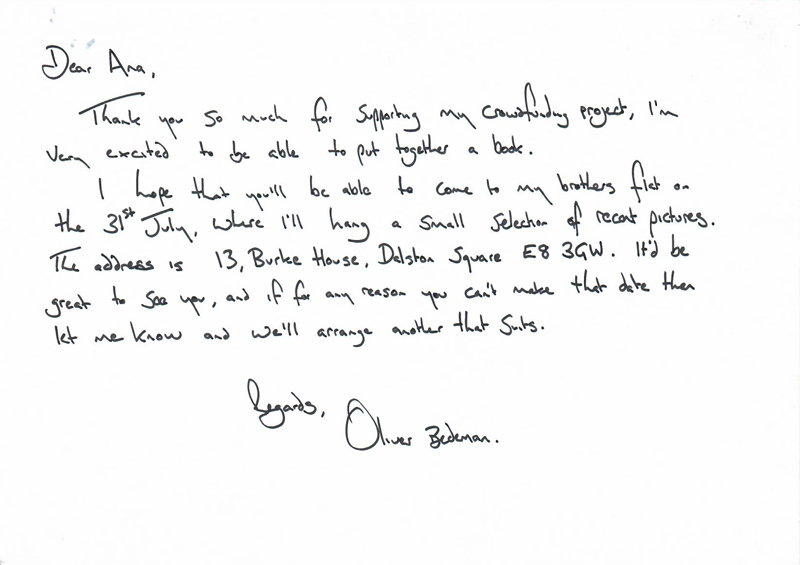 Dear Ana,
Thank you so much for supporting my crowdfunding project, I'm
very excited to be able to put together a book.
I hope that you'll be able to come to my brothers flat on
the 31st July, where I'll hang a small selection of recent pictures.
The address is 13, Burke House, Dalston Square E8 3GW. It'd be
great to see you, and if for any reason you can't make that date then
let me know and we'll arrange another that suits.
Regards,
Oliver Bedeman.